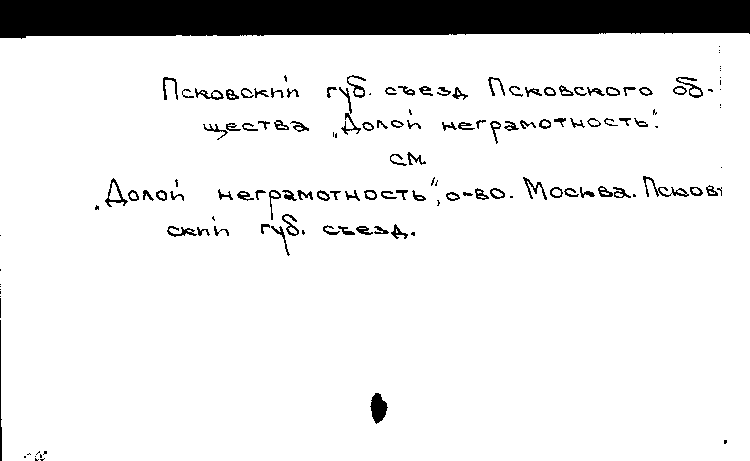 Псковский губ. съезд Псковского об-
щества „Долой неграмотность".
см.
„Долой неграмотность", о-во. Москва. Псков
ский губ. съезд.